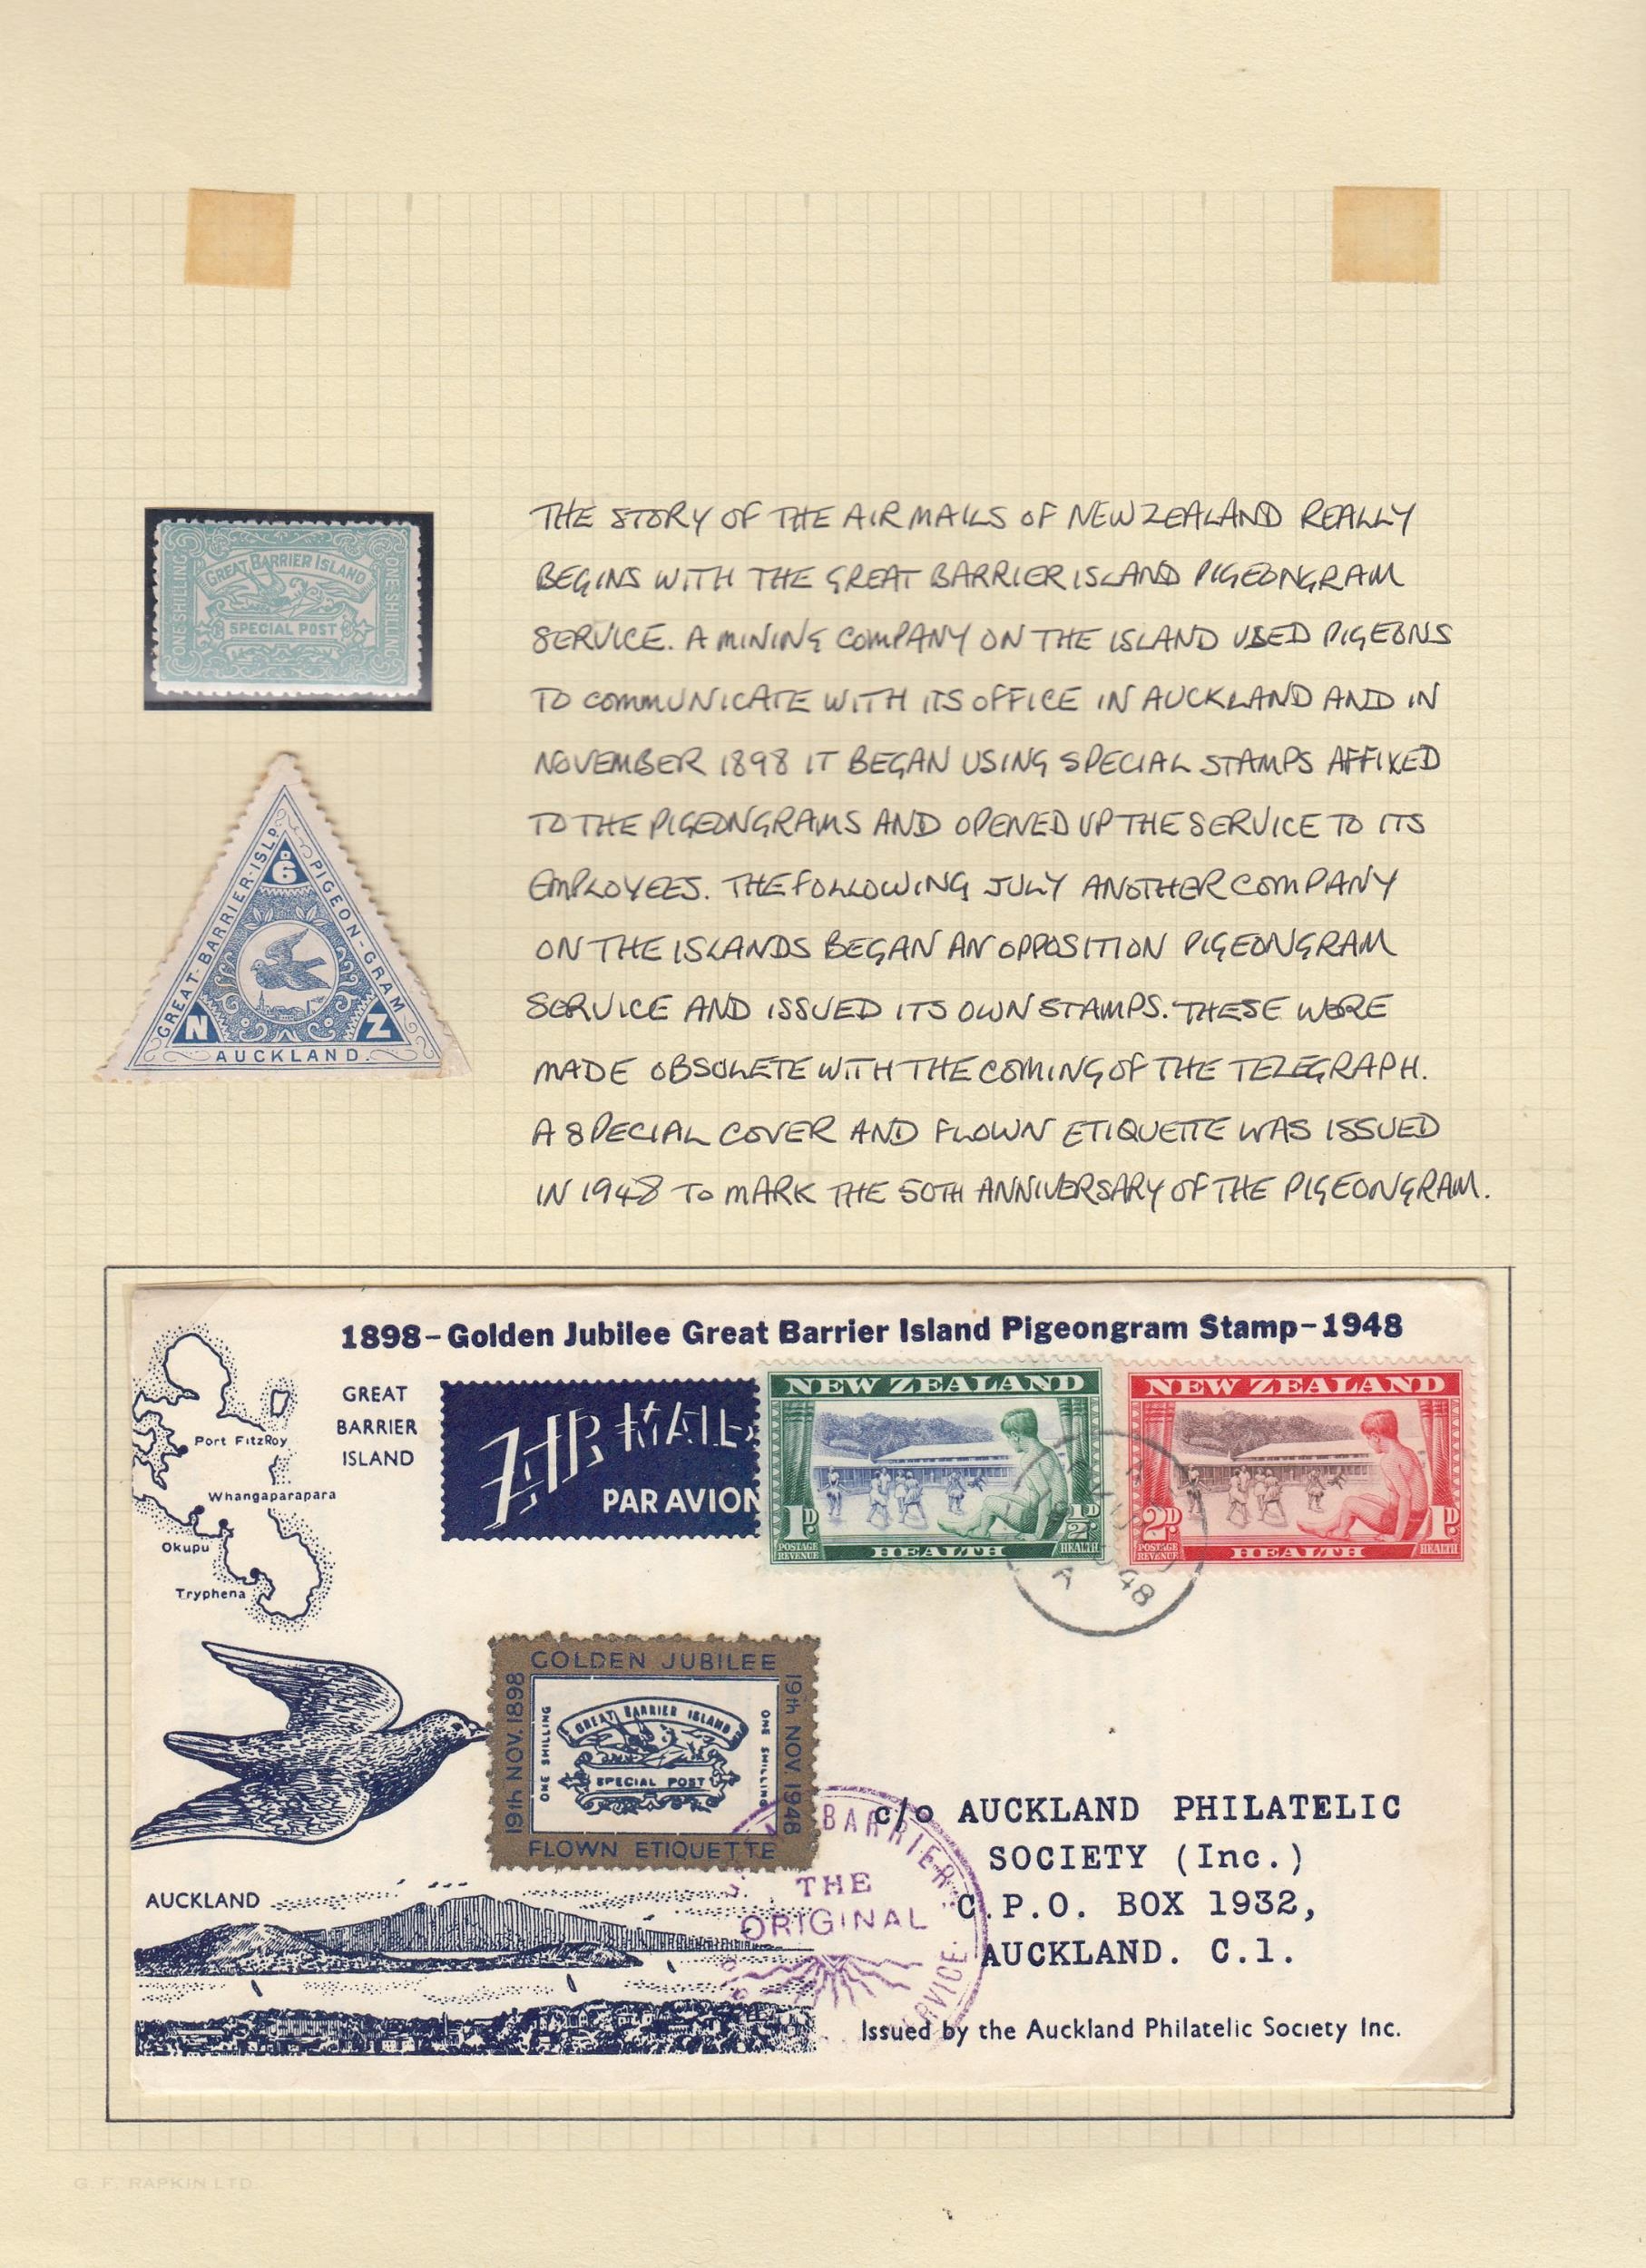 ONE SHILLING
GREAT BARRIER ISLAND
SPECIAL POST
ONE SHILLING
GREAT·BARRIER·ISLD
PIGEON-GRAM
6D
N Z
AUCKLAND.
THE STORY OF THE AIR MAILS OF NEW ZEALAND REALLY
BEGINS WITH THE GREAT BARRIER ISLAND PIGEONGRAM
SERVICE. A MINING COMPANY ON THE ISLAND USED PIGEONS
TO COMMUNICATE WITH ITS OFFICE IN AUCKLAND AND IN
NOVEMBER 1898 IT BEGAN USING SPECIAL STAMPS AFFIXED
TO THE PIGEONGRAMS AND OPENED UP THE SERVICE TO ITS
EMPLOYEES. THE FOLLOWING JULY ANOTHER COMPANY
ON THE ISLANDS BEGAN AN OPPOSITION PIGEONGRAM
SERVICE AND ISSUED ITS OWN STAMPS. THESE WERE
MADE OBSOLETE WITH THE COMING OF THE TELEGRAPH.
A SPECIAL COVER AND FLOWN ETIQUETTE WAS ISSUED
IN 1948 TO MARK THE 50TH ANNIVERSARY OF THE PIGEONGRAM.
1898-Golden Jubilee Great Barrier Island Pigeongram Stamp-1948
GREAT
BARRIER
ISLAND
Port FitzRoy
Whangaparapara
Okupu
Tryphena
AIR MAIL
PAR AVION
NEW ZEALAND
1D
1/2D
POSTAGE
REVENUE
HEALTH
HEALTH
NEW ZEALAND
2D
1D
POSTAGE
REVENUE
HEALTH
HEALTH
A 48
GOLDEN JUBILEE
19th NOV. 1898
19th NOV. 1948
ONE SHILLING
GREAT BARRIER ISLAND
SPECIAL POST
ONE SHILLING
FLOWN ETIQUETTE
BARRIER
THE
ORIGINAL
c/o AUCKLAND PHILATELIC
SOCIETY (Inc.)
C.P.O. BOX 1932,
AUCKLAND. C.1.
AUCKLAND
Issued by the Auckland Philatelic Society Inc.
G. F. RAPKIN LTD.